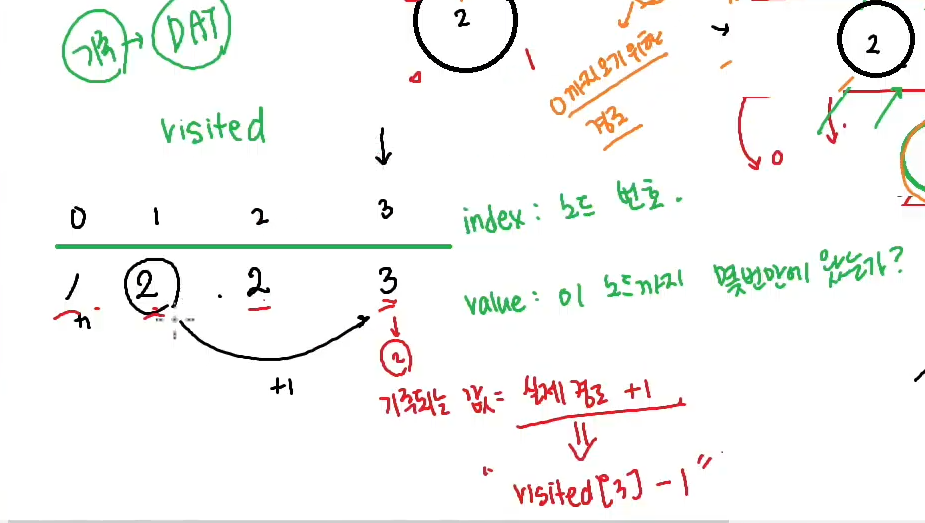 기록 → DAT
2
2
1
0까지 오기 위한
경로
visited
0
0 1 2 3
index : 노드 번호.
1 2 . 2 3
value : 이 노드까지 몇번만에 왔는가?
2
+1
기록되는 값 = 실제 경로 +1
"visited[3] - 1"